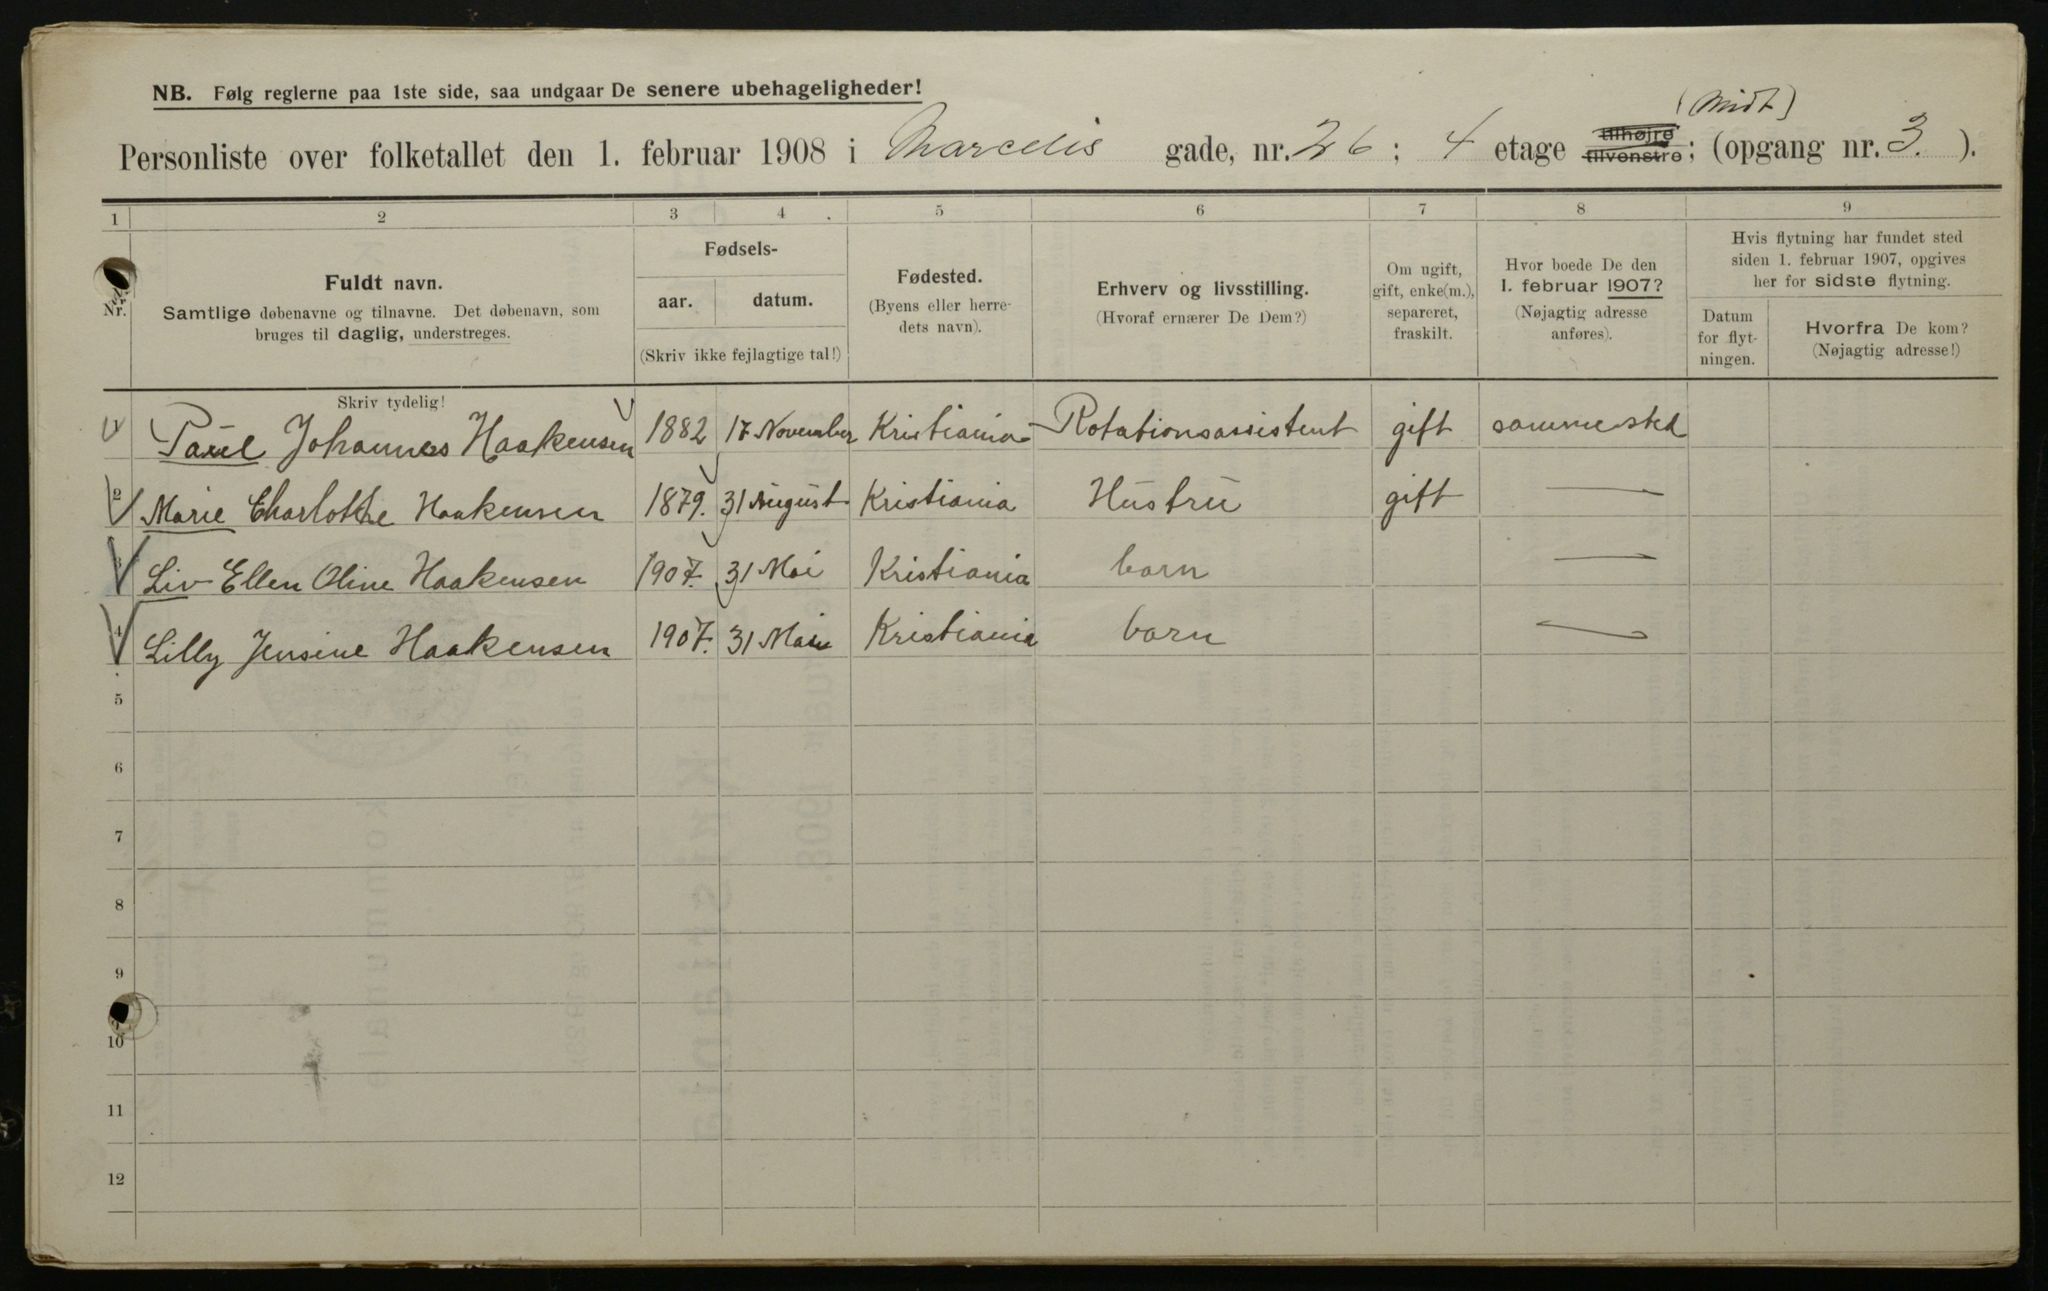 NB. Følg reglerne paa 1ste side, saa undgaar De senere ubehageligheder!
(Midt)
Personliste over folketallet den 1. februar 1908 i Marcelis gade, nr. 26; 4 etage tilhøjre tilvenstre; (opgang nr. 3.).
1 2 3 4 5 6 7 8 9
Nr.
Fuldt navn.
Samtlige døbenavne og tilnavne. Det døbenavn, som
bruges til daglig, understreges.
Skriv tydelig!
Fødsels-
aar. datum.
(Skriv ikke fejlagtige tal!)
Fødested.
(Byens eller herre-
dets navn).
Erhverv og livsstilling.
(Hvoraf ernærer De Dem?)
Om ugift,
gift, enke(m.),
separeret,
fraskilt.
Hvor boede De den
1. februar 1907?
(Nøjagtig adresse
anføres).
Hvis flytning har fundet sted
siden 1. februar 1907, opgives
her for sidste flytning.
Datum
for flyt-
ningen.
Hvorfra De kom?
(Nøjagtig adresse!)
1 Paul Johannes Haakensen 1882 17 November Kristiania Rotationsassistent gift samme sted
2 Marie Charlothe Haakensen 1879. 31 August Kristiania Hustru gift —
3 Liv Ellen Oline Haakensen 1907. 31 Mai Kristiania barn —
4 Lilly Jensine Haakensen 1907. 31 Mai Kristiania barn —
5
6
7
8
9
10
11
12